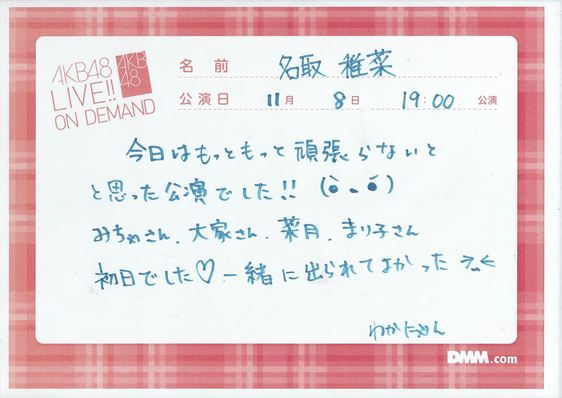 AKB48
LIVE!!
ON DEMAND
AKB
48
名前 名取 稚菜
公演日 11月 8日 19:00 公演
今日はもっともっと頑張らないと
と思った公演でした!! (ò、ó)
みちゃさん、大家さん、菜月、まり子さん
初日でした♡一緒に出られてよかった >_<
わかにゃん
DMM.com